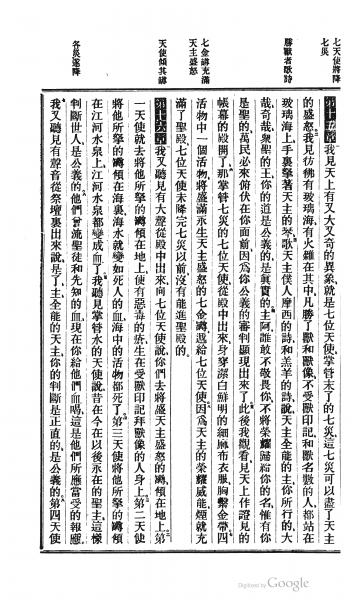 七天使將降
七災
勝獸者歌詩
七金鐏充滿
天主盛怒
天使傾其鐏
各災遂降
第十五章我見天上有又大又奇的異象就是七位天使掌管末了的七災這七災可以盡了天主
的盛怒我見彷彿有玻璃海有火雜在其中凡勝了獸和獸像不受獸印記和獸名數的人都站在
玻璃海上手裏拏著天主的琴歌天主僕人摩西的詩和羔羊的詩說天主全能的主你所行的大
哉奇哉衆聖的主你的道是公義的是眞實的主阿誰敢不敬畏你不將榮耀歸給你的名惟有你
是聖的萬民必來俯伏在你面前因爲你公義的審判顯現出來了此後我觀看見天上作證見的
帳幕的殿開了那掌管七災的七位天使從殿中出來身穿潔白鮮明的細麻布衣服胸繫金帶四
活物中一個活物將盛滿永生天主盛怒的七金鐏遞給七位天使因爲天主的榮耀威能煙就充
滿了聖殿七位天使未降完七災以前沒有能進聖殿的
第十六章我又聽見有大聲從殿中出來向七位天使說你們去將盛天主盛怒的鐏傾在地上第
一天使就去將他所拏的鐏傾在地上便有惡毒的瘡生在受獸印記拜獸像的人身上第二天使
將他所拏的鐏傾在海裏海水就變如死人的血海中的活物都死了第三天使將他所拏的鐏傾
在江河水泉上江河水泉都變成血了我聽見掌管水的天使說昔在今在以後永在的聖主這樣
判斷世人是公義的他們曾流聖徒和先知的血現在你給他們血喝這是他們所應當受的報應
我又聽見有聲音從祭壇裏出來說是了主全能的天主你的判斷是正直的是公義的第四天使
Digitized by Google